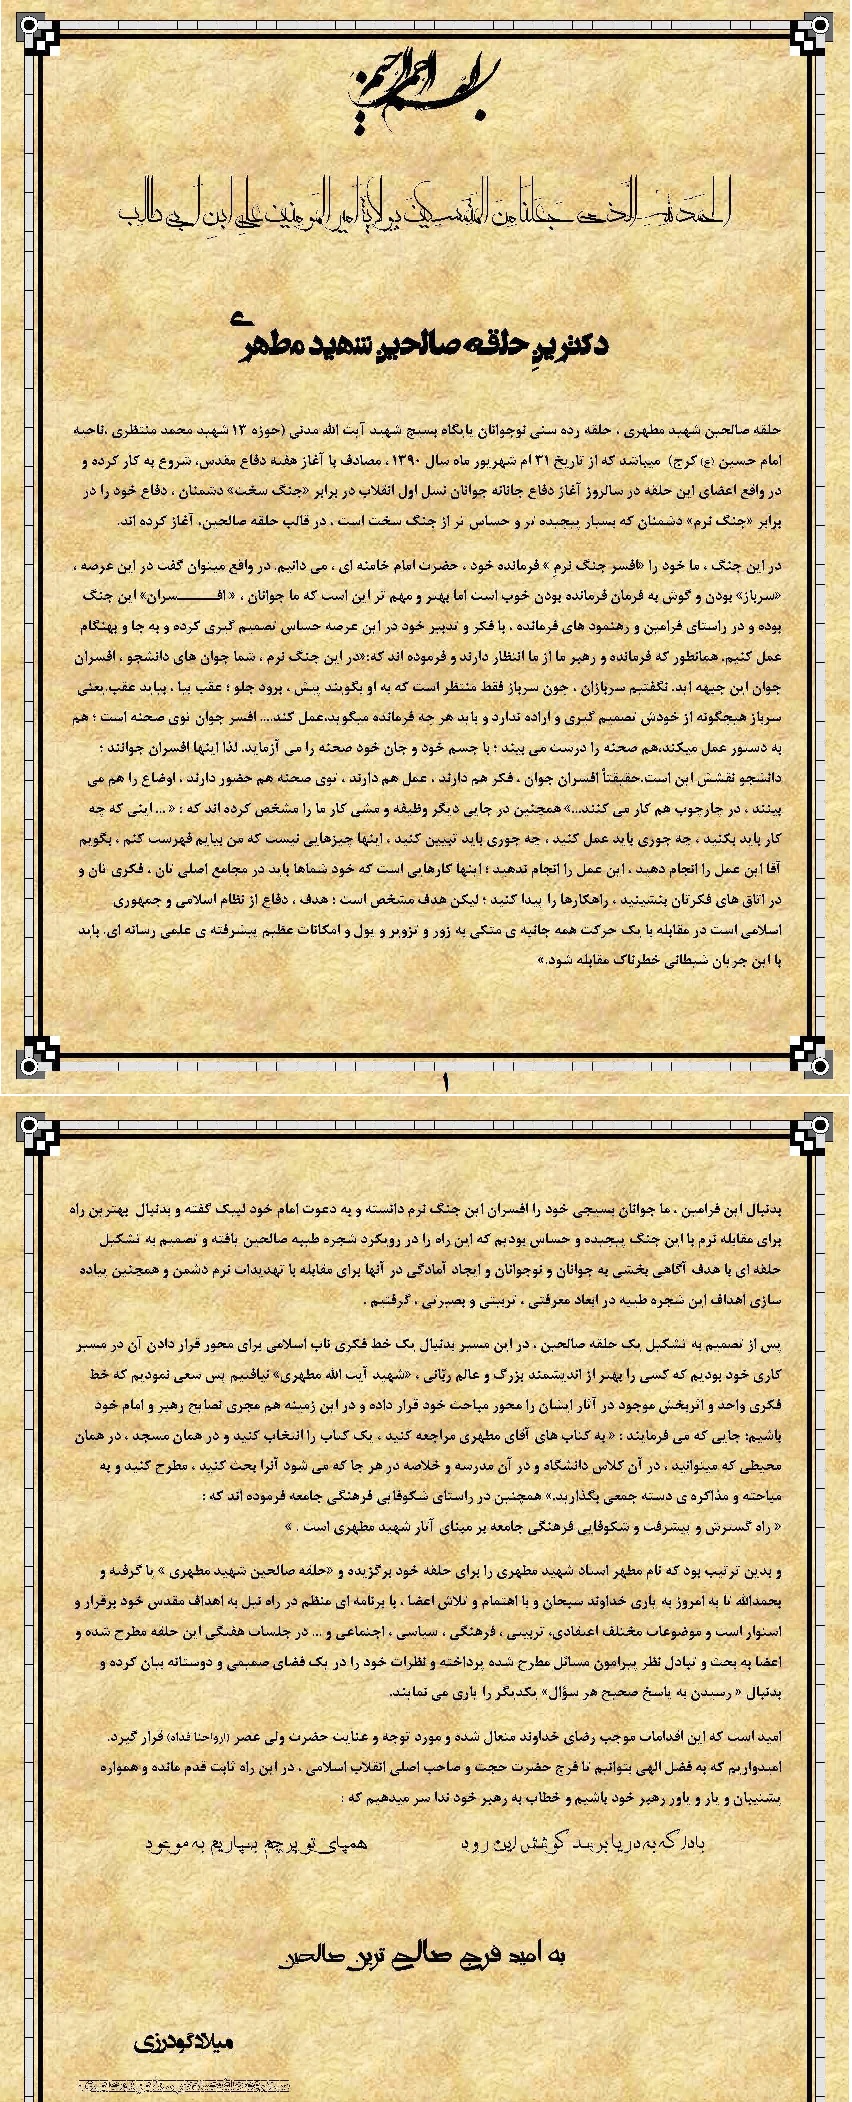 بسم الله الرحمن الرحیم
الحمد لله الذی جعلنا من المتمسکین بولایة امیر المومنین علی ابن ابی طالب
دکترین حلقه صالحین شهید مطهری
حلقه صالحین شهید مطهری ، حلقه رده سنی نوجوانان پایگاه بسیج شهید آیت الله مدنی (حوزه ۱۳ شهید محمد منتظری ،ناحیه
امام حسین (ع) کرج) میباشد که از تاریخ ۳۱ ام شهریور ماه سال ۱۳۹۰ ، مصادف با آغاز هفته دفاع مقدس، شروع به کار کرده و
در واقع اعضای این حلقه در سالروز آغاز دفاع جانانه جوانان نسل اول انقلاب در برابر «جنگ سخت» دشمنان ، دفاع خود را در
برابر «جنگ نرم» دشمنان که بسیار پیچیده تر و حساس تر از جنگ سخت است ، در قالب حلقه صالحین، آغاز کرده اند.
در این جنگ ، ما خود را «افسر جنگ نرم » فرمانده خود ، حضرت امام خامنه ای ، می دانیم. در واقع میتوان گفت در این عرصه ،
«سرباز» بودن و گوش به فرمان فرمانده بودن خوب است اما بهتر و مهم تر این است که ما جوانان ، « افـــــــسران» این جنگ
بوده و در راستای فرامین و رهنمود های فرمانده ، با فکر و تدبیر خود در این عرصه حساس تصمیم گیری کرده و به جا و بهنگام
عمل کنیم. همانطور که فرمانده و رهبر ما از ما انتظار دارند و فرموده اند که:«در این جنگ نرم ، شما جوان های دانشجو ، افسران
جوان این جبهه اید. نگفتیم سربازان ، چون سرباز فقط منتظر است که به او بگویند پیش ، برود جلو ؛ عقب بیا ، بیاید عقب.یعنی
سرباز هیچگونه از خودش تصمیم گیری و اراده ندارد و باید هر چه فرمانده میگوید،عمل کند.... افسر جوان توی صحنه است ؛ هم
به دستور عمل میکند،هم صحنه را درست می بیند ؛ با جسم خود و جان خود صحنه را می آزماید. لذا اینها افسران جوانند ؛
دانشجو نقشش این است.حقیقتاً افسران جوان ، فکر هم دارند ، عمل هم دارند ، توی صحنه هم حضور دارند ، اوضاع را هم می
بینند ، در چارچوب هم کار می کنند...» همچنین در جایی دیگر وظیفه و مشی کار ما را مشخص کرده اند که : « ... اینی که چه
کار باید بکنید ، چه جوری باید عمل کنید ، چه جوری باید تبیین کنید ، اینها چیزهایی نیست که من بیایم فهرست کنم ، بگویم
آقا این عمل را انجام دهید ، این عمل را انجام ندهید ؛ اینها کارهایی است که خود شماها باید در مجامع اصلی تان ، فکری تان و
در اتاق های فکرتان بنشینید ، راهکارها را پیدا کنید ؛ لیکن هدف مشخص است ؛ هدف ، دفاع از نظام اسلامی و جمهوری
اسلامی است در مقابله با یک حرکت همه جانبه ی متکی به زور و تزویر و پول و امکانات عظیم پیشرفته ی علمی رسانه ای. باید
با این جریان شیطانی خطرناک مقابله شود.»
۱
بدنبال این فرامین ، ما جوانان بسیجی خود را افسران این جنگ نرم دانسته و به دعوت امام خود لبیک گفته و بدنبال بهترین راه
برای مقابله نرم با این جنگ پیچیده و حساس بودیم که این راه را در رویکرد شجره طیبه صالحین یافته و تصمیم به تشکیل
حلقه ای با هدف آگاهی بخشی به جوانان و نوجوانان و ایجاد آمادگی در آنها برای مقابله با تهدیدات نرم دشمن و همچنین پیاده
سازی اهداف این شجره طیبه در ابعاد معرفتی ، تربیتی و بصیرتی ، گرفتیم .
پس از تصمیم به تشکیل یک حلقه صالحین ، در این مسیر بدنبال یک خط فکری ناب اسلامی برای محور قرار دادن آن در مسیر
کاری خود بودیم که کسی را بهتر از اندیشمند بزرگ و عالم ربّانی ، «شهید آیت الله مطهری» نیافتیم پس سعی نمودیم که خط
فکری واحد و اثربخش موجود در آثار ایشان را محور مباحث خود قرار داده و در این زمینه هم مجری نصایح رهبر و امام خود
باشیم؛ جایی که می فرمایند : « به کتاب های آقای مطهری مراجعه کنید ، یک کتاب را انتخاب کنید و در همان مسجد ، در همان
محیطی که میتوانید ، در آن کلاس دانشگاه و در آن مدرسه و خلاصه در هر جا که می شود آنرا بحث کنید ، مطرح کنید و به
مباحثه و مذاکره ی دسته جمعی بگذارید.» همچنین در راستای شکوفایی فرهنگی جامعه فرموده اند که :
« راه گسترش و پیشرفت و شکوفایی فرهنگی جامعه بر مبنای آثار شهید مطهری است . »
و بدین ترتیب بود که نام مطهر استاد شهید مطهری را برای حلقه خود برگزیده و «حلقه صالحین شهید مطهری » پا گرفته و
بحمدالله تا به امروز به یاری خداوند سبحان و با اهتمام و تلاش اعضا ، با برنامه ای منظم در راه نیل به اهداف مقدس خود برقرار و
استوار است و موضوعات مختلف اعتقادی، تربیتی ، فرهنگی ، سیاسی ، اجتماعی و ... در جلسات هفتگی این حلقه مطرح شده و
اعضا به بحث و تبادل نظر پیرامون مسائل مطرح شده پرداخته و نظرات خود را در یک فضای صمیمی و دوستانه بیان کرده و
بدنبال « رسیدن به پاسخ صحیح هر سؤال» یکدیگر را یاری می نمایند.
امید است که این اقدامات موجب رضای خداوند متعال شده و مورد توجه و عنایت حضرت ولی عصر (ارواحنا فداه) قرار گیرد.
امیدواریم که به فضل الهی بتوانیم تا فرج حضرت حجت و صاحب اصلی انقلاب اسلامی ، در این راه ثابت قدم مانده و همواره
پشتیبان و یار و یاور رهبر خود باشیم و خطاب به رهبر خود ندا سر میدهیم که :
بادا که به دریا برسد کوشش این رود همپای تو پرچم بسپاریم به موعود
به امید فرج صالح ترین صالحین
میلاد گودرزی